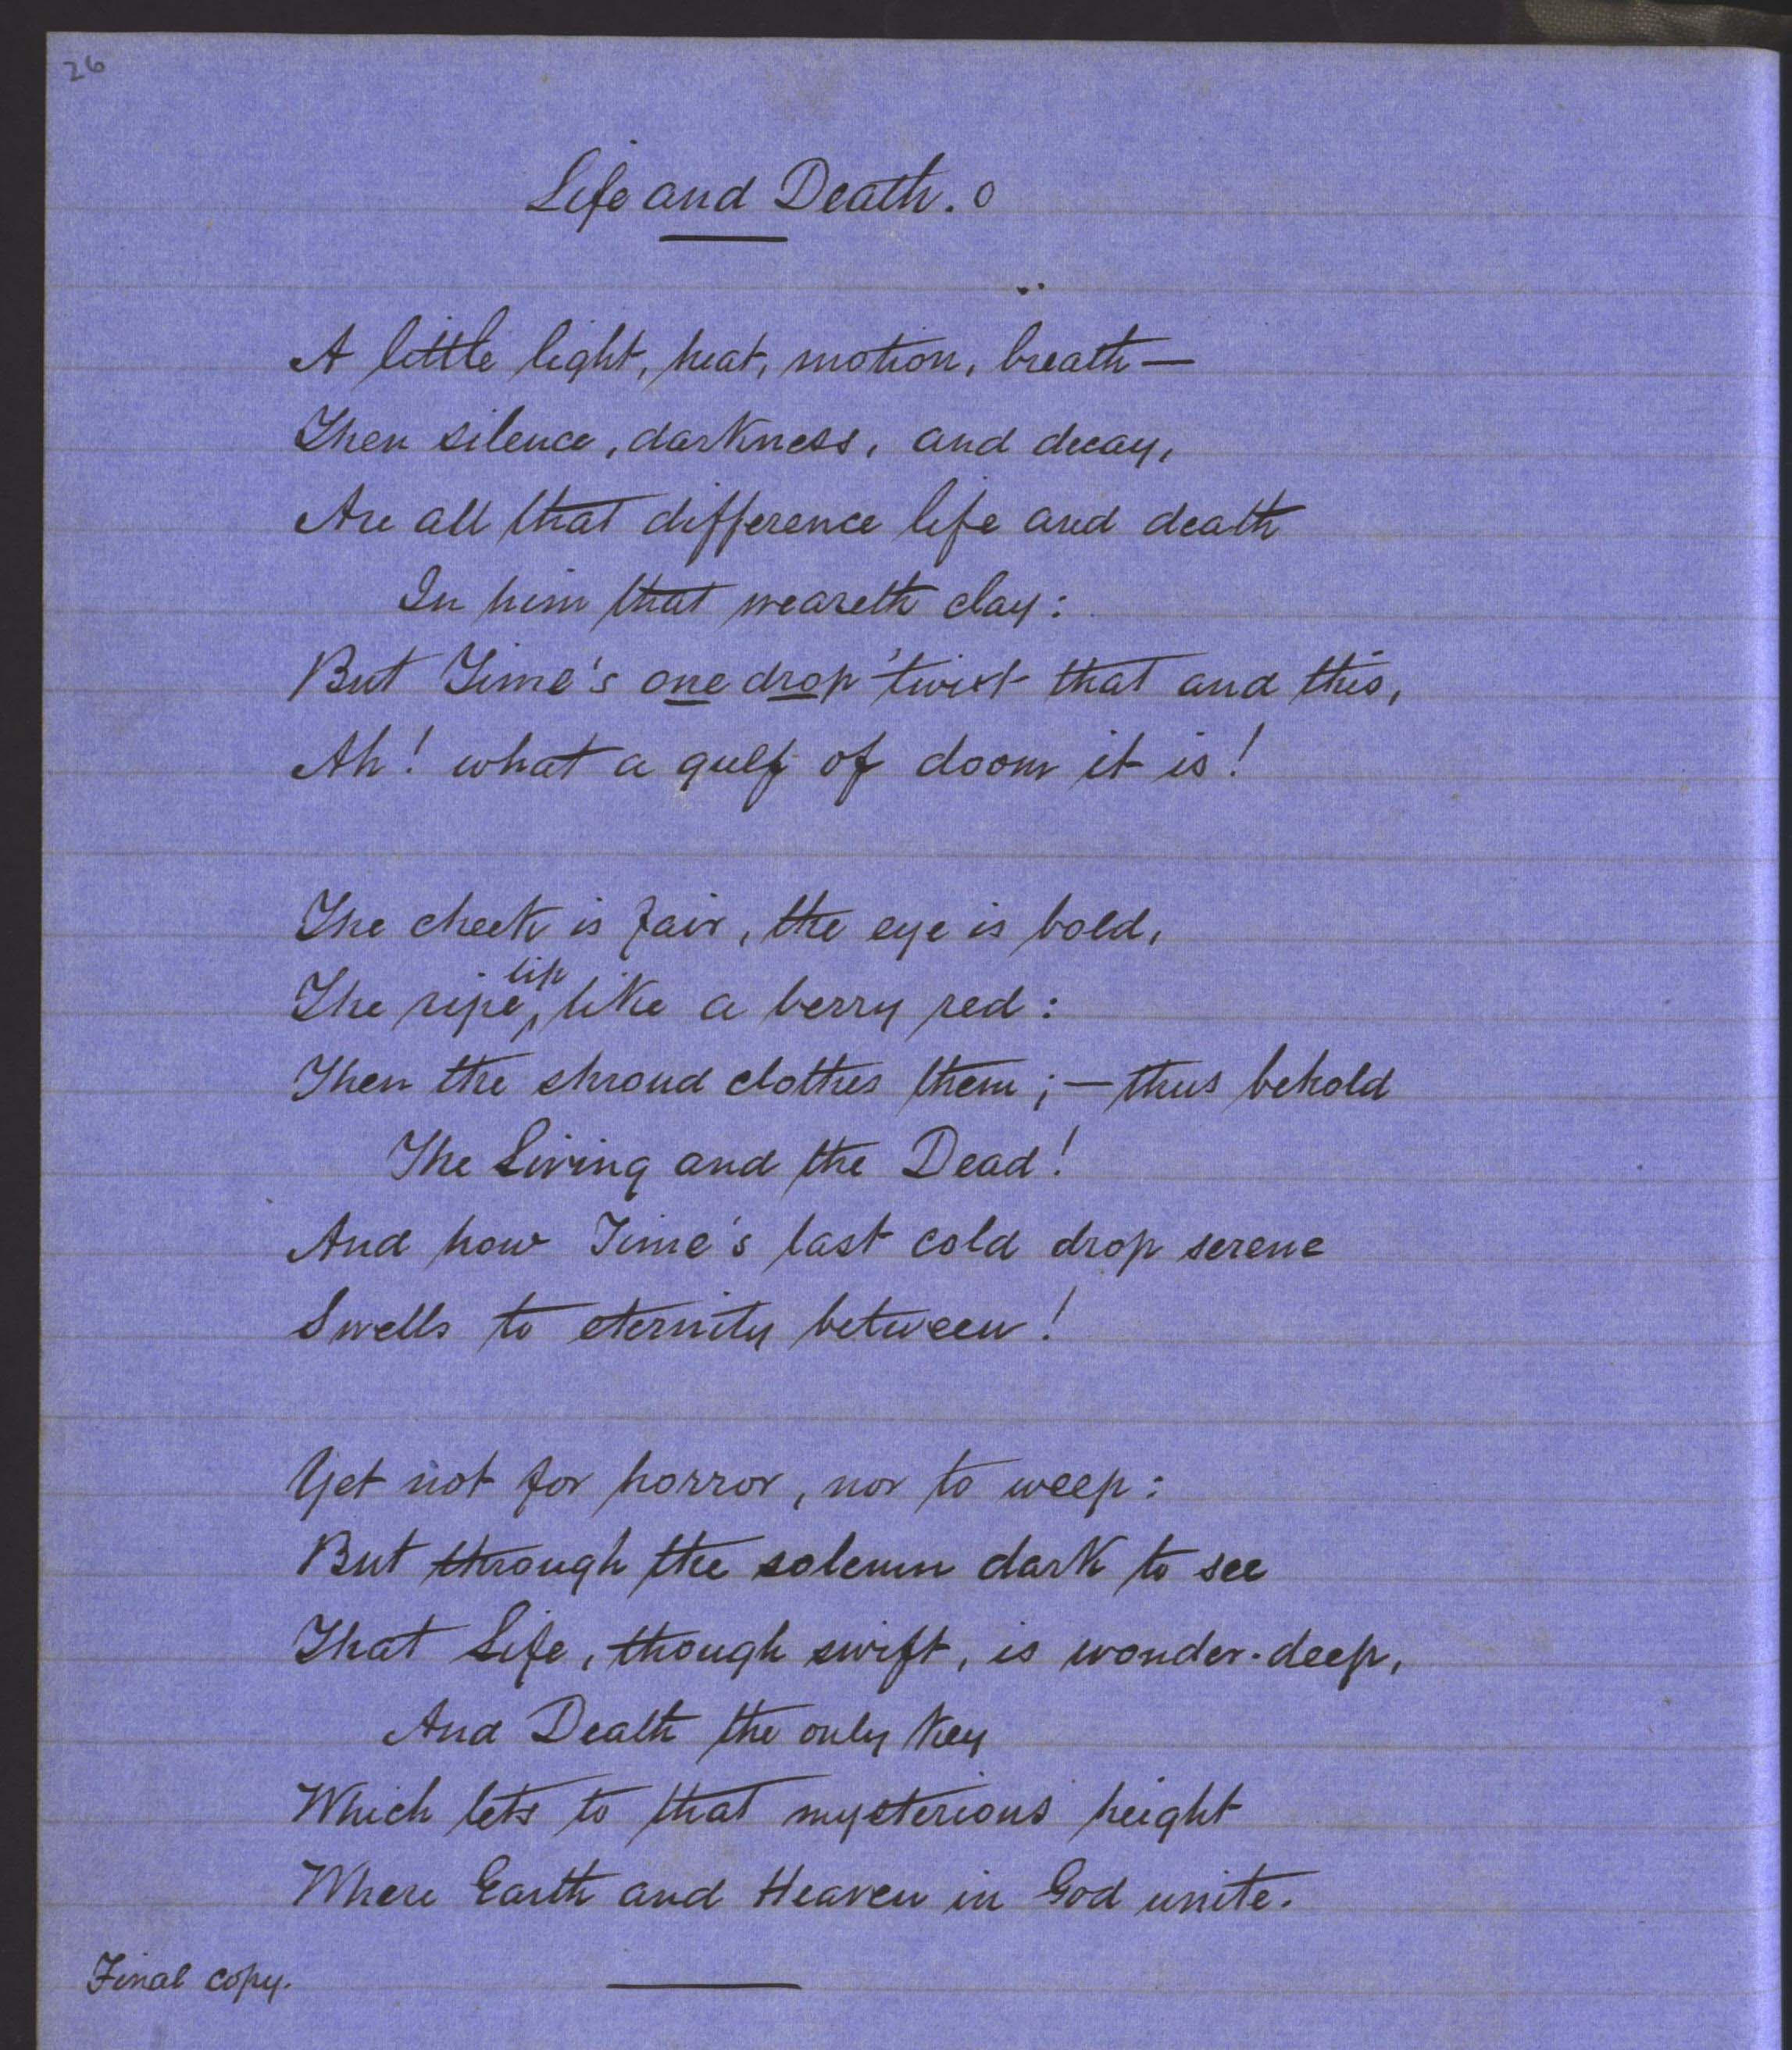 26
Life and Death. o
A little light, heat, motion, breath —
Then silence, darkness, and decay,
Are all that difference life and death
In him that weareth clay:
But Time's one drop 'twixt that and this,
Ah! what a gulf of doom it is!
The cheek is fair, the eye is bold,
The ripe lip like a berry red:
Then the shroud clothes them; — thus behold
The Living and the Dead!
And how Time's last cold drop serene
Swells to eternity between!
Yet not for horror, nor to weep:
But through the solemn dark to see
That Life, though swift, is wonder-deep,
And Death the only key
Which lets to that mysterious height
Where Earth and Heaven in God unite.
Final copy.